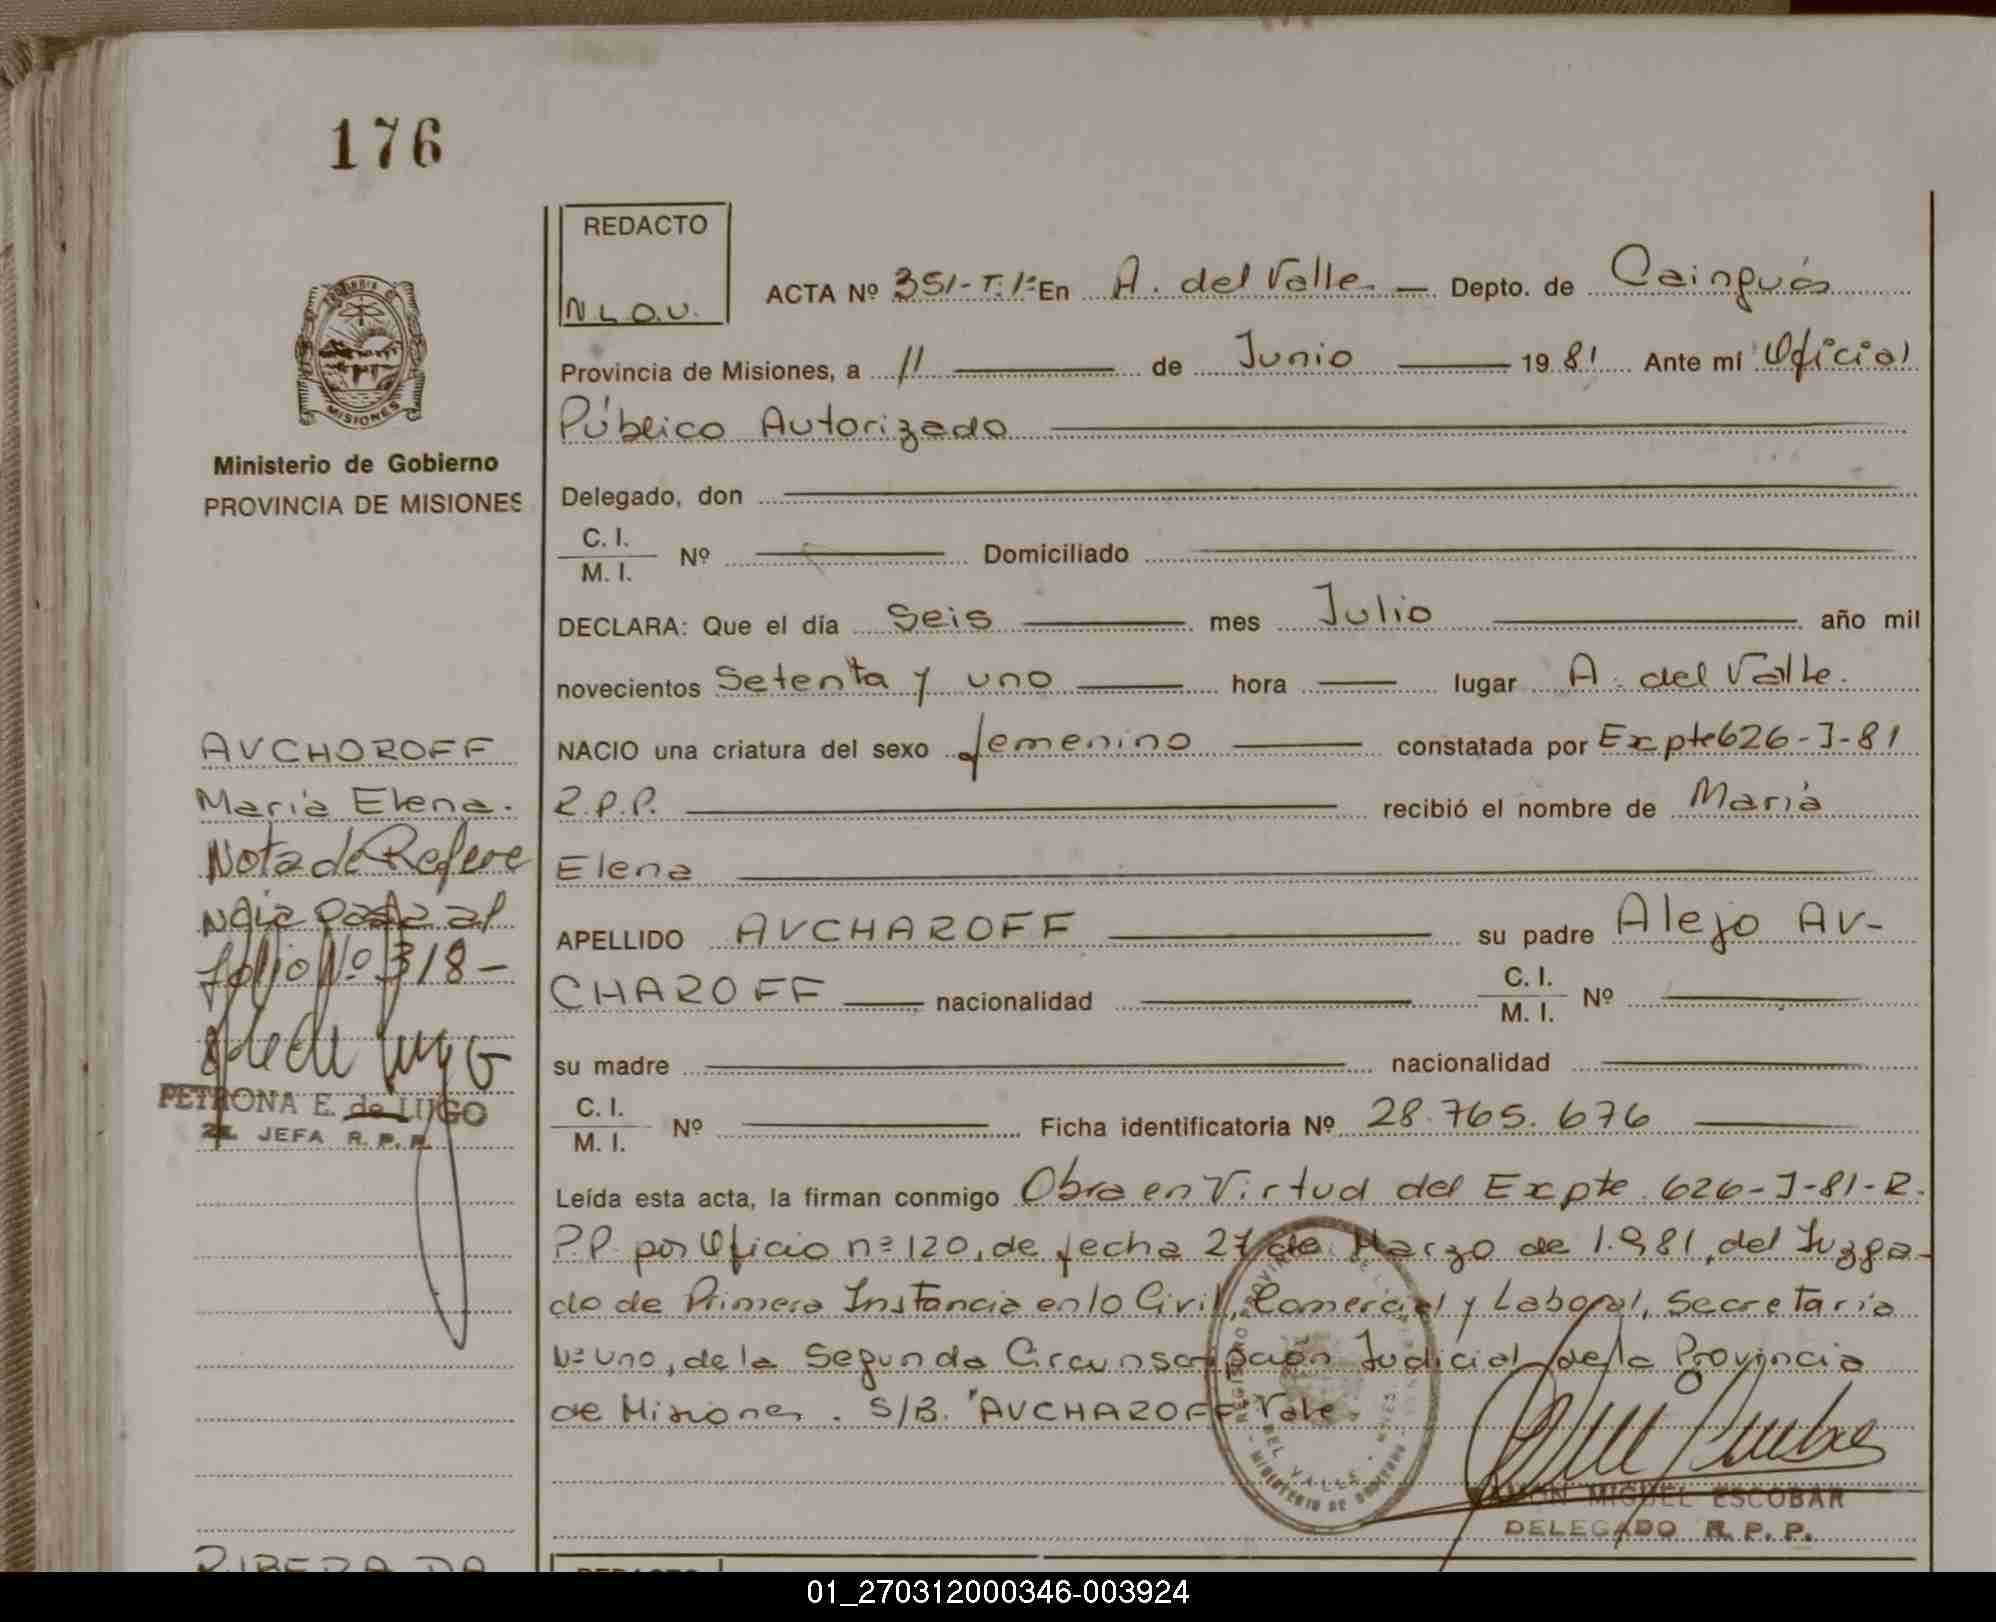 176
REDACTO
N.L.O.U.
ACTA Nº 351-T.1º En A. del Valle. — Depto. de Cainguás
Provincia de Misiones, a 11 de Junio 1981 Ante mí Oficial
Público Autorizado
Delegado, don
C. I.
M. I.
Nº Domiciliado
DECLARA: Que el día Seis mes Julio año mil
novecientos Setenta y uno hora lugar A. del Valle.
NACIO una criatura del sexo femenino constatada por Expte 626-J-81
R.P.P. recibió el nombre de María
Elena
APELLIDO AVCHAROFF su padre Alejo AV-
CHAROFF nacionalidad C. I.
M. I. Nº
su madre nacionalidad
C. I.
M. I.
Nº Ficha identificatoria Nº 28.765.676
Leída esta acta, la firman conmigo Obra en Virtud del Expte. 626-J-81-R.
P.P. por Oficio nº 120, de fecha 27 de Marzo de 1.981, del Juzga-
do de Primera Instancia en lo Civil, Comercial y Laboral, Secretaría
Nº uno, de la Segunda Circunscripción Judicial de la Provincia
de Misiones. S/B. "AVCHAROFF Vale.
RAMON MIGUEL ESCOBAR
DELEGADO R. P. P.
REGISTRO PROVINCIAL DE LAS PERSONAS
DEL VALLE - MNES
MINISTERIO DE GOBIERNO
MISIONES
Ministerio de Gobierno
PROVINCIA DE MISIONES
AVCHOROFF
María Elena.
Nota de Refere
ncia pasa al
folio Nº 318-
PETRONA E. de LUGO
JEFA R. P. P.
REDACTO
01_270312000346-003924